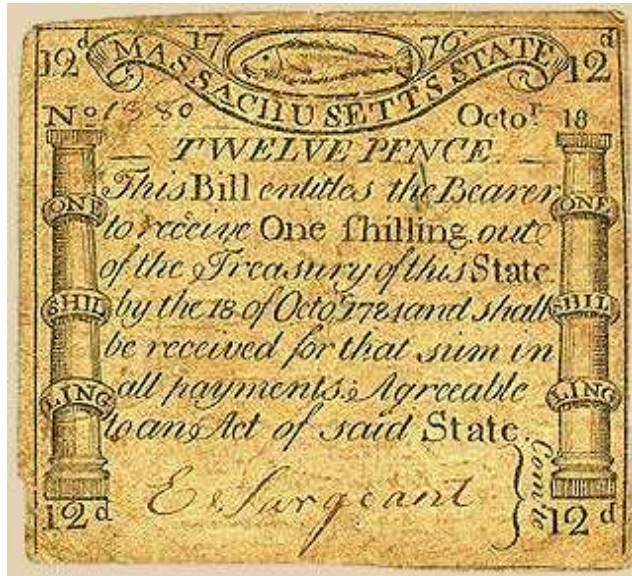 12d 17 76 12d
MASSACHUSETTS STATE
No 1380 Octor. 18
TWELVE PENCE.
This Bill entitles the Bearer
to receive One ſhilling out
of the Treasury of this State
by the 18 of Octor. 1784 and shall
be received for that sum in
all payments Agreeable
to an Act of said State.
ONE ONE
SHIL SHIL
LING LING
E Sargeant
Comte
12d 12d